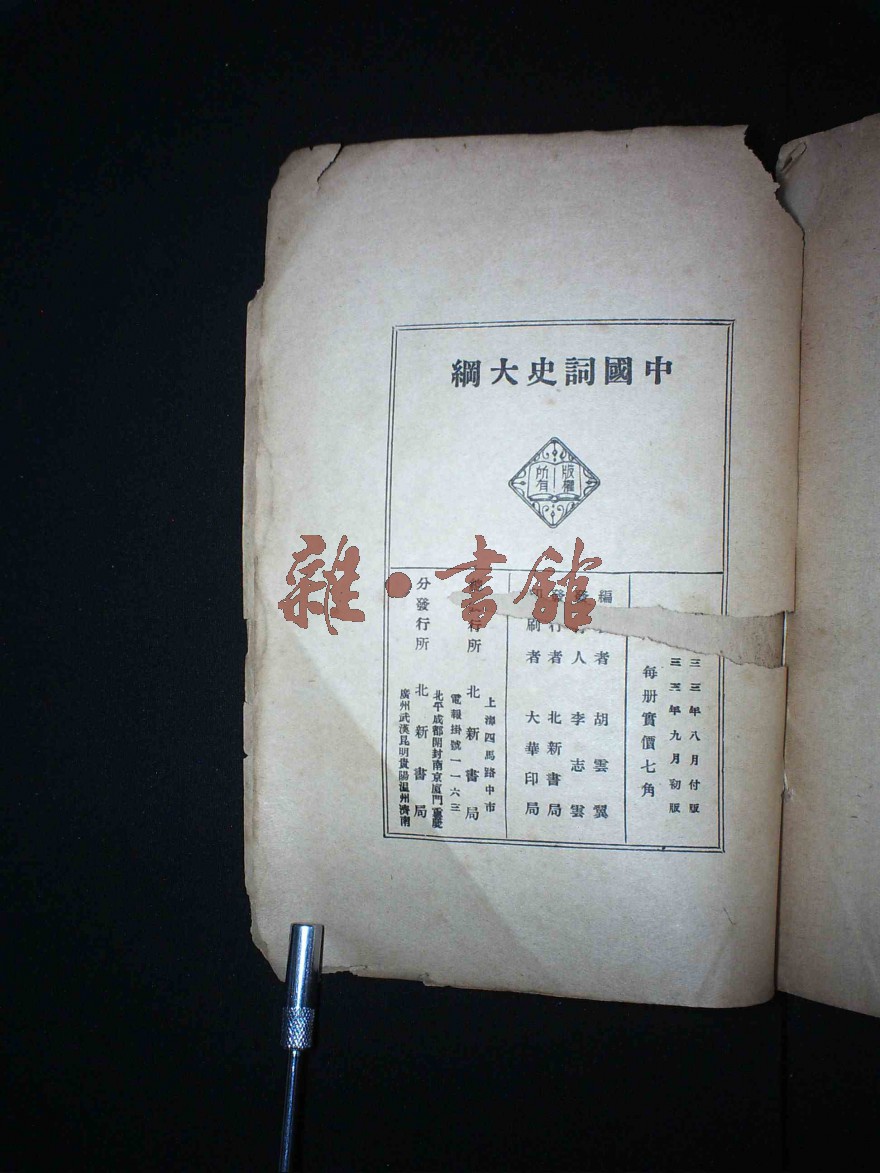 中國詞史大綱
版權
所有
三三年八月付版
三三年九月初版
每册實價七角
編 者 胡雲翼
人 李志雲
行者 北新書局
刷者 大華印局
上海四馬路中市
行所 北新書局
電報掛號一一六三
北平成都開封南京厦門重慶
分發行所 北新書局
廣州武漢昆明貴陽温州濟南
雜·書館